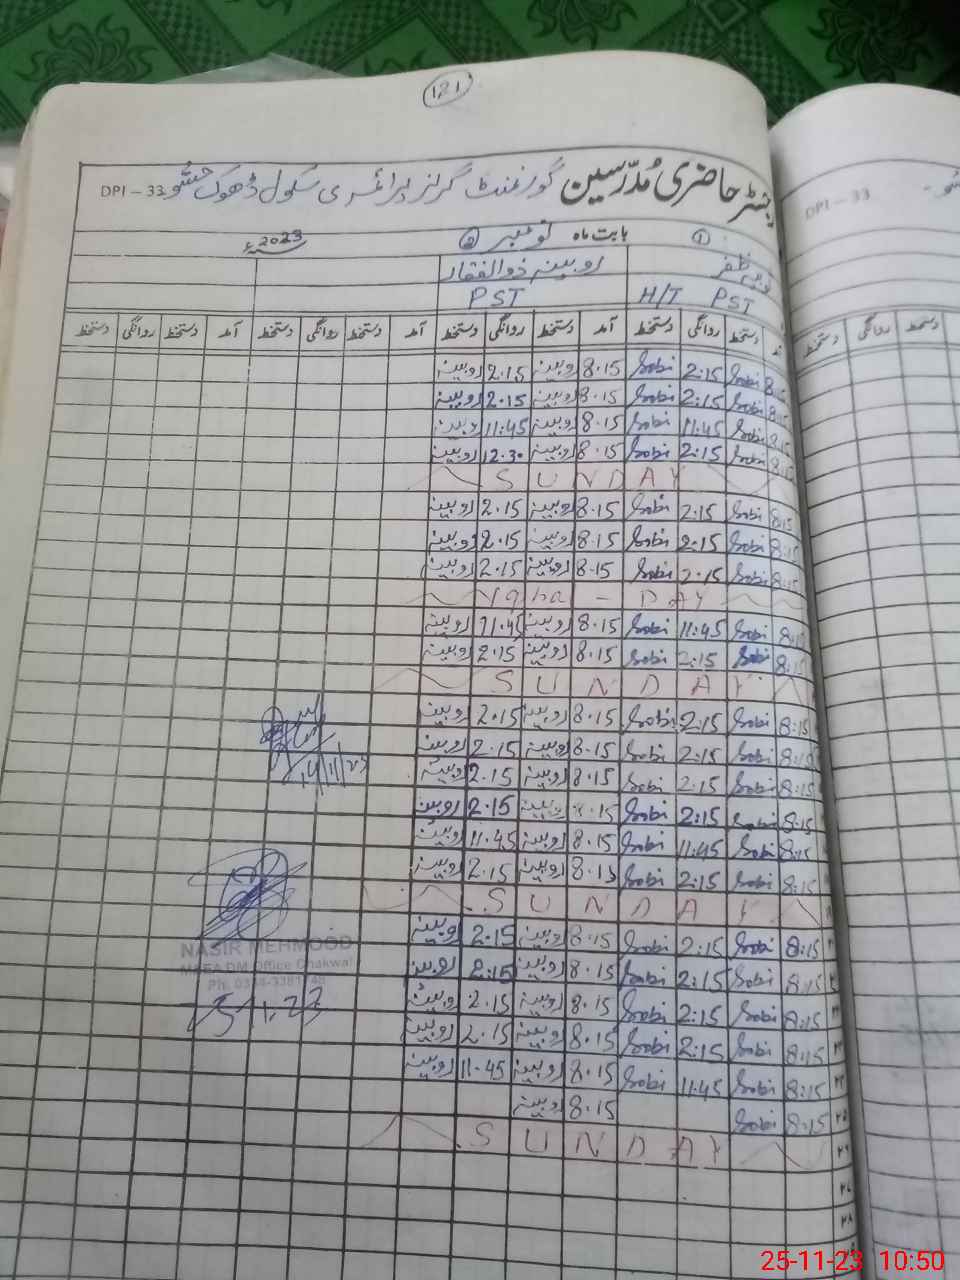 121
رجسٹر حاضری مدرسین گورنمنٹ گرلز پرائمری سکول ڈھوک DPI – 33
DPI – 33
① بابت ماہ نومبر ② 2023ء
ظفر روبینہ ذوالفقار
H/T PST PST
دستخط روانگی دستخط آمد دستخط روانگی دستخط آمد دستخط روانگی دستخط
دستخط روانگی دستخط
8:15 Sobi 2:15 Sobi 8.15 روبینہ 2.15 روبینہ
8:15 Sobi 2:15 Sobi 8.15 روبینہ 2.15 روبینہ
8:15 Sobi 11:45 Sobi 8.15 روبینہ 11:45 روبینہ
8:15 Sobi 2:15 Sobi 8.15 روبینہ 12.30 روبینہ
SUNDAY
8:15 Sobi 2:15 Sobi 8.15 روبینہ 2.15 روبینہ
8:15 Sobi 2:15 Sobi 8.15 روبینہ 2.15 روبینہ
8:15 Sobi 2:15 Sobi 8.15 روبینہ 2.15 روبینہ
Iqbal - DAY
8:15 Sobi 11:45 Sobi 8.15 روبینہ 11.45 روبینہ
8:15 Sobi 2:15 Sobi 8.15 روبینہ 2.15 روبینہ
SUNDAY
8:15 Sobi 2:15 Sobi 8.15 روبینہ 2.15 روبینہ
8:15 Sobi 2:15 Sobi 8.15 روبینہ 2.15 روبینہ
8:15 Sobi 2:15 Sobi 8.15 روبینہ 2.15 روبینہ
14/11/23
8:15 Sobi 2:15 Sobi 8.15 روبینہ 2.15 روبینہ
8:15 Sobi 11:45 Sobi 8.15 روبینہ 11.45 روبینہ
8:15 Sobi 2:15 Sobi 8.15 روبینہ 2.15 روبینہ
SUNDAY
8:15 Sobi 2:15 Sobi 8.15 روبینہ 2.15 روبینہ
NASIR MEHMOOD
8:15 Sobi 2:15 Sobi 8.15 روبینہ 2.15 روبینہ
MAEA DM Office Chakwal
8:15 Sobi 2:15 Sobi 8.15 روبینہ 2.15 روبینہ
8:15 Sobi 2:15 Sobi 8.15 روبینہ 2.15 روبینہ
8:15 Sobi 11:45 Sobi 8.15 روبینہ 11.45 روبینہ
۲۵ 8:15 Sobi 8.15 روبینہ
۲۶ SUNDAY
۲۷
۲۸
25-11-23 10:50